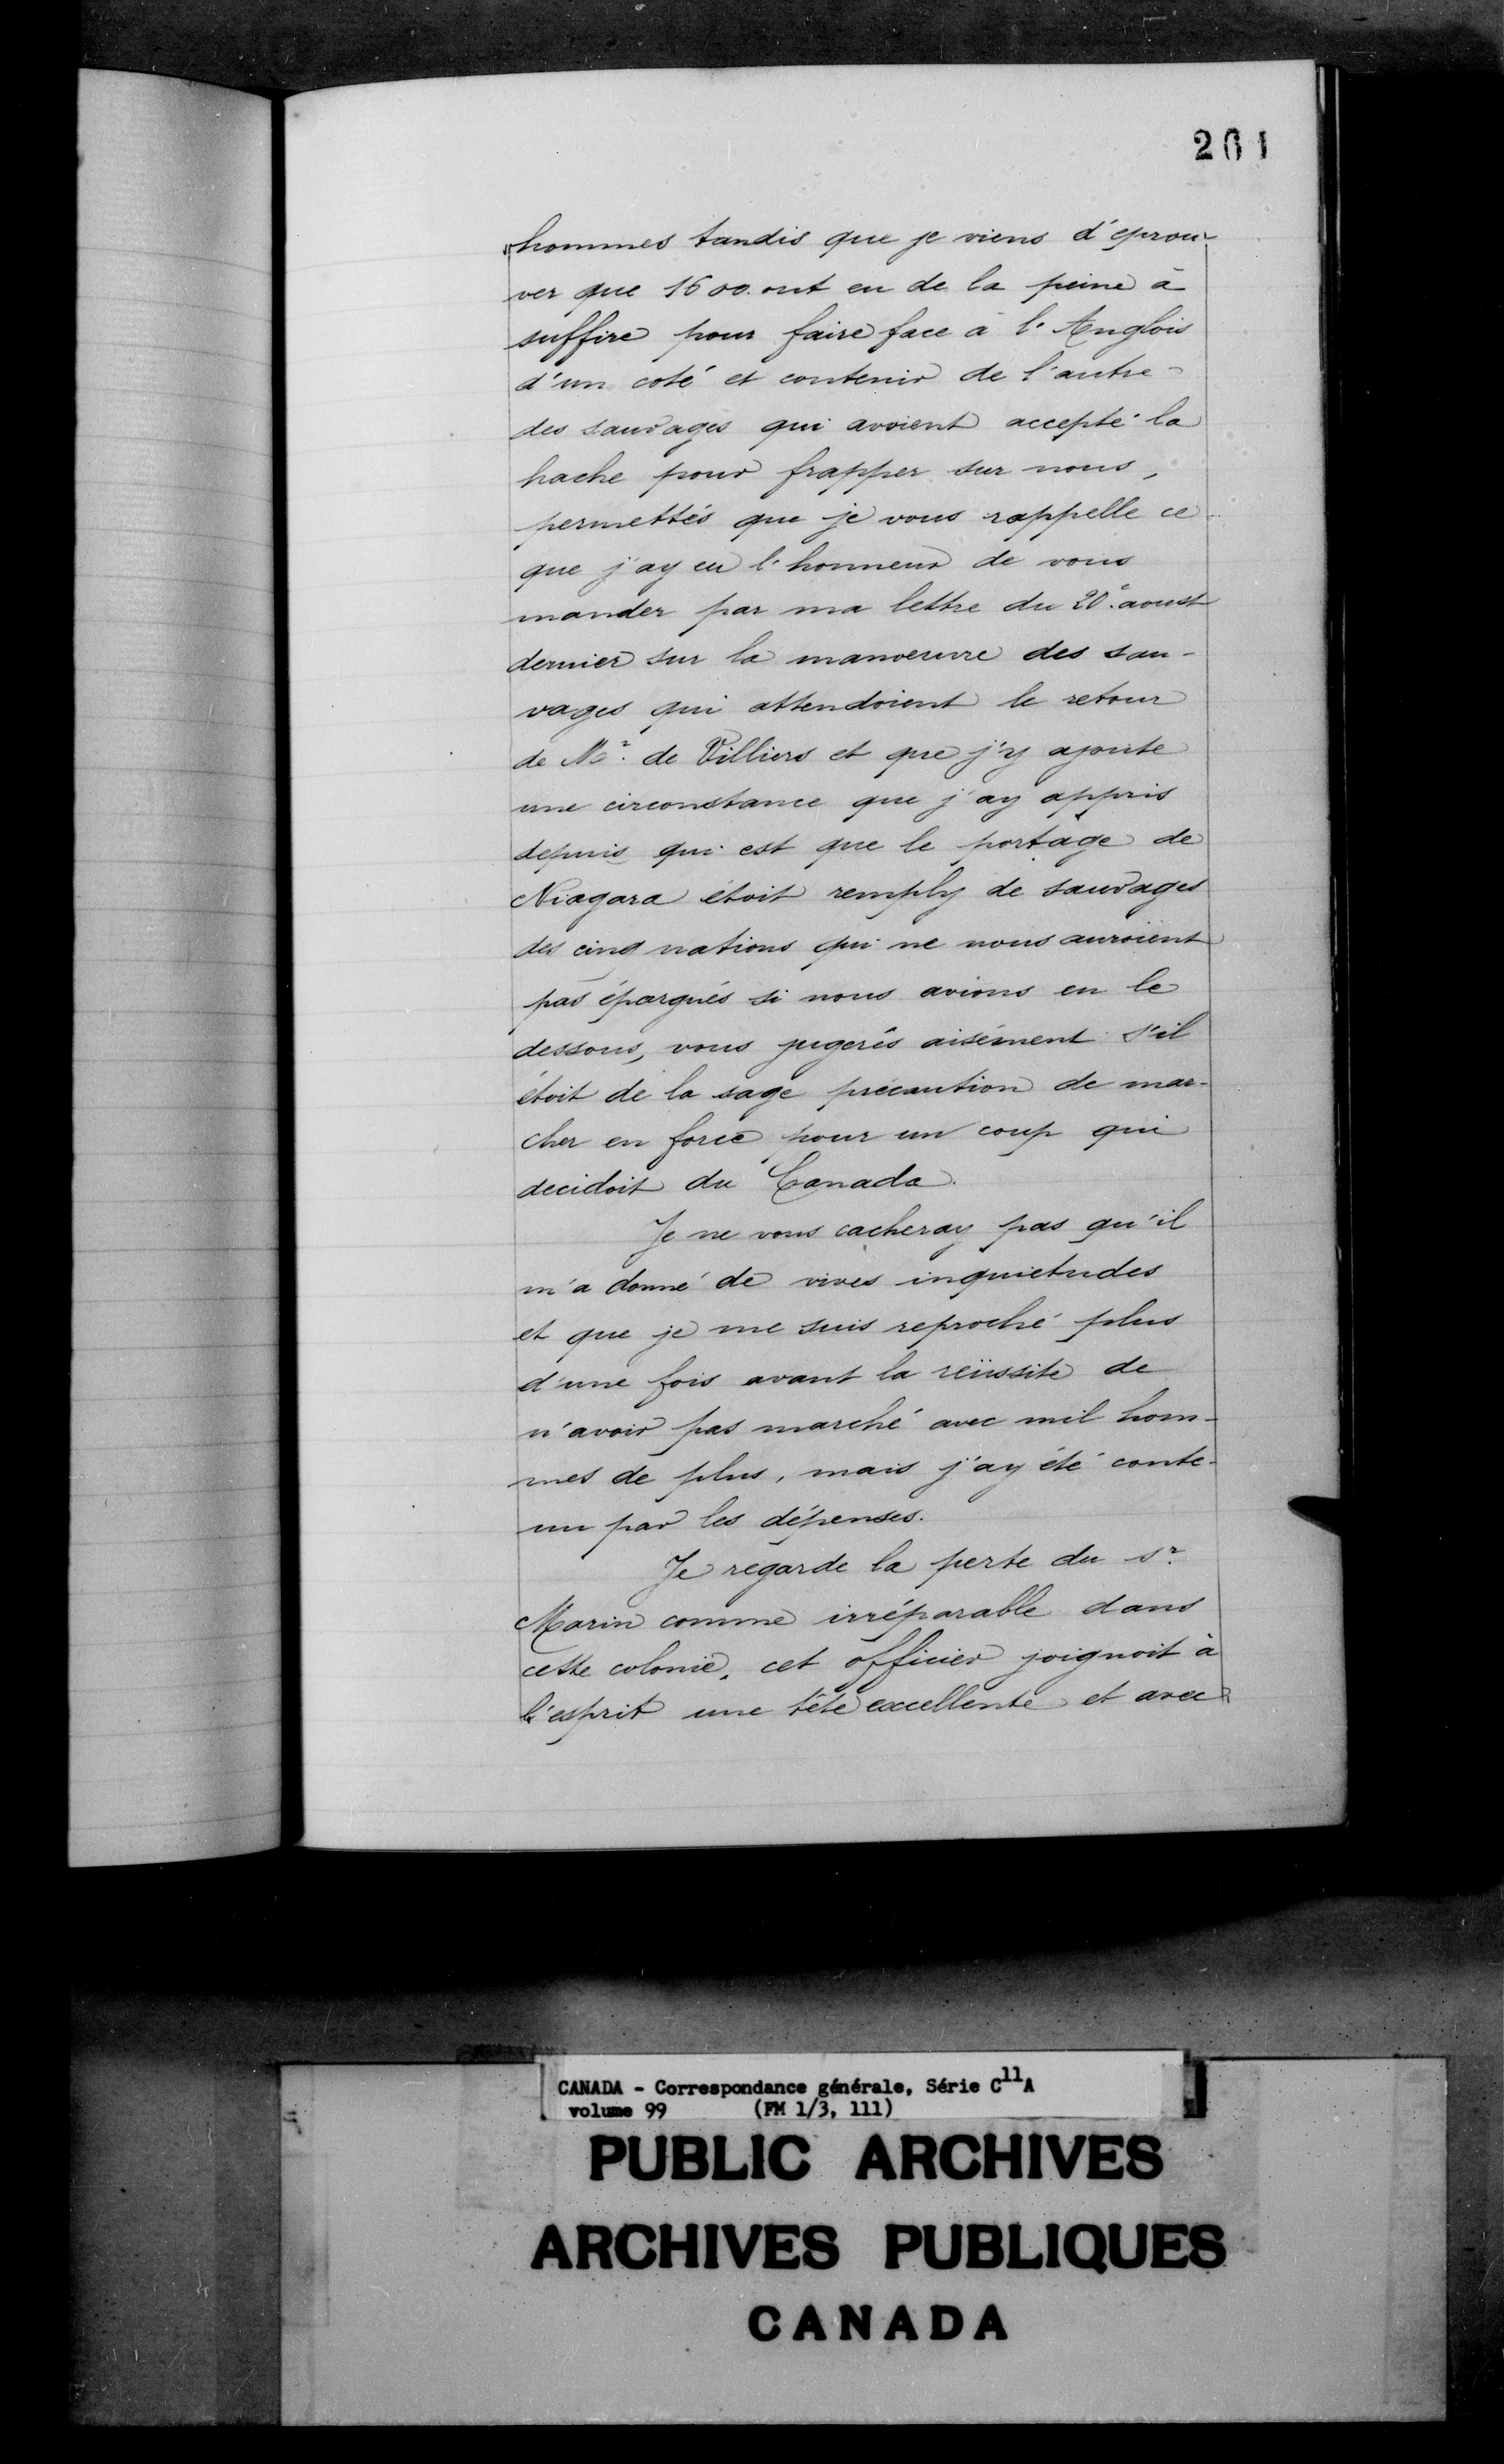 261
hommes tandis que je viens d'éprou-
ver que 1600. ont eu de la peine à
suffire pour faire face à l'Anglois
d'un coté et contenir de l'autre
des sauvages qui avoient accepté la
hache pour frapper sur nous,
permettés que je vous rappelle ce
que j'ay eu l'honneur de vous
mander par ma lettre du 20e. aoust
dernier sur la manoeuvre des sau-
vages qui attendoient le retour
de Mr. de Villiers et que j'y ajoute
une circonstance que j'ay appris
depuis qui est que le portage de
Niagara étoit remply de sauvages
des cinq nations qui ne nous auroient
pas épargnés si nous avions eu le
dessous, vous jugerés aisément s'il
étoit de la sage précaution de mar-
cher en force pour un coup qui
decidoit du Canada.
Je ne vous cacheray pas qu'il
m'a donné de vives inquietudes
et que je me suis reproché plus
d'une fois avant la reüssite de
n'avoir pas marché avec mil hom-
mes de plus, mais j'ay été conte-
nu par les dépenses.
Je regarde la perte du sr.
Marin comme irréparable dans
cette colonie, cet officier joignoit à
l'esprit une tête excellente et avec
CANADA - Correspondance générale, Série C11A
volume 99 (FM 1/3, 111)
PUBLIC ARCHIVES
ARCHIVES PUBLIQUES
CANADA